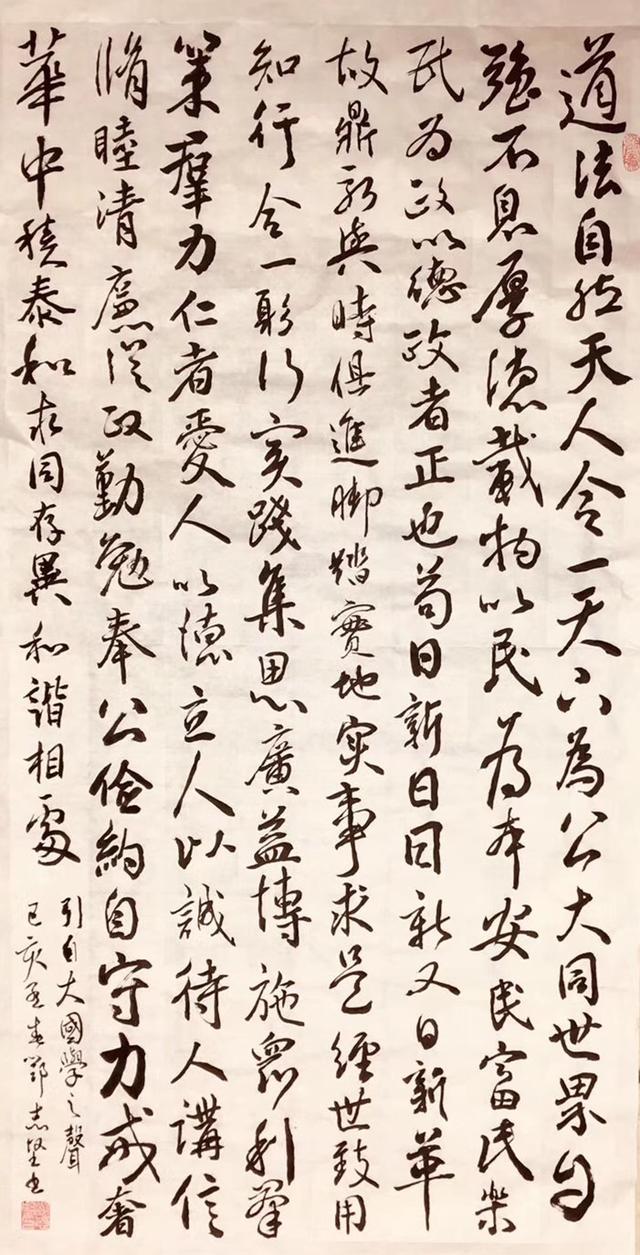 道法自然天人合一天下為公大同世界自
強不息厚德載物以民為本安民富民樂
民為政以德政者正也苟日新日日新又日新革
故鼎新與時俱進腳踏實地實事求是經世致用
知行合一躬行實踐集思廣益博施眾利羣
策羣力仁者愛人以德立人以誠待人講信
脩睦清廉從政勤勉奉公儉約自守力戒奢
華中泰和求同存異和諧相處
引自大國學之聲
己亥孟春志堅書